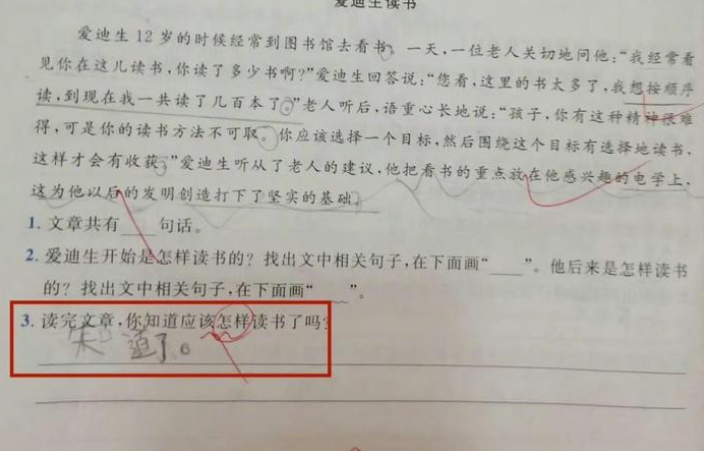 爱迪生读书
爱迪生12岁的时候经常到图书馆去看书。一天,一位老人关切地问他:“我经常看
见你在这儿读书,你读了多少书啊?”爱迪生回答说:“您看,这里的书太多了,我想按顺序
读,到现在我一共读了几百本了。”老人听后,语重心长地说:“孩子,你有这种精神很难
得,可是你的读书方法不可取。你应该选择一个目标,然后围绕这个目标有选择地读书,
这样才会有收获。”爱迪生听从了老人的建议,他把看书的重点放在他感兴趣的电学上,
这为他以后的发明创造打下了坚实的基础。
1. 文章共有___句话。
2. 爱迪生开始是怎样读书的?找出文中相关句子,在下面画“___”。他后来是怎样读书
的?找出文中相关句子,在下面画“﹏﹏”。
3. 读完文章,你知道应该怎样读书了吗?
知道了。